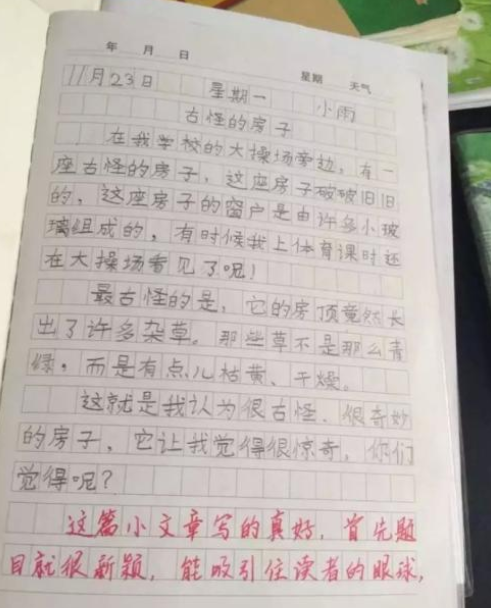 年 月 日 星期 天气
11月23日 星期一 小雨
古怪的房子
在我学校的大操场旁边，有一
座古怪的房子，这座房子破破旧旧
的，这座房子的窗户是由许多小玻
璃组成的，有时候我上体育课时还
在大操场看见了呢！
最古怪的是，它的房顶竟然长
出了许多杂草，那些草不是那么青
绿，而是有点儿枯黄、干燥。
这就是我认为很古怪、很奇妙
的房子，它让我觉得很惊奇，你们
觉得呢？
这篇小文章写的真好，首先题
目就很新颖，能吸引住读者的眼球，